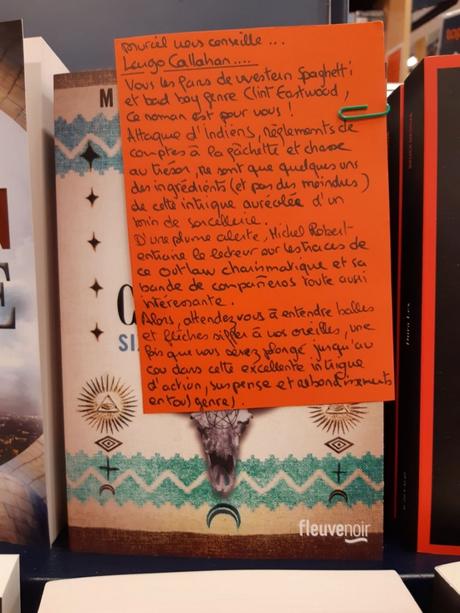 Muriel vous conseille ...
Lengo Callahan....
Vous les fans de western Spaghetti
et bad boy genre Clint Eastwood,
ce roman est pour vous !
Attaque d'indiens, règlements de
comptes à la gâchette et chasse
au trésor, ne sont que quelques uns
des ingrédients (et pas des moindres)
de cette intrigue auréolée d'un
brin de sorcellerie.
D'une plume alerte, Michel Robert
entraine le lecteur sur les traces de
ce outlaw charismatique et sa
bande de compañeros toute aussi
intéressante.
Alors, attendez-vous à entendre balles
et flèches siffler à vos oreilles, une
fois que vous serez plongé jusqu'au
cou dans cette excellente intrigue
d'action, suspense et rebondissements
en tout genre.
M
SI
fleuvenoir
E